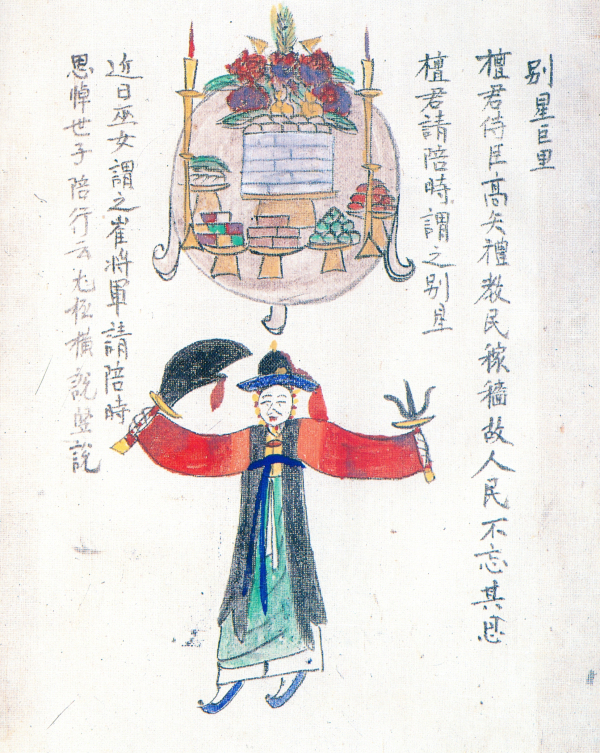 別星巨里
檀君侍臣高矢禮教民稼穡故人民不忘其恩
檀君請陪時謂之別星
近日巫女謂之崔將軍請陪時
思悼世子陪行云尤極橫說竪說